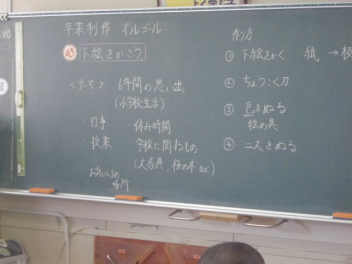 卒業制作 オルゴール
め 下絵をかこう
<テーマ> 6年間の思い出
(小学校生活)
行事 休み時間
授業 学校に関するもの
(文房具、校の木など)
お気に入りの
場所
作り方
① 下絵をかく 紙 → 板
② ちょうこく刀
③ 色をぬる
絵の具
④ ニスをぬる